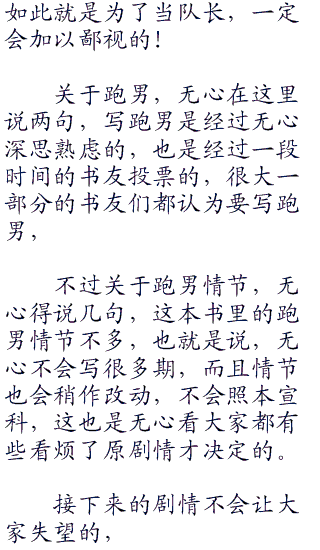 如此就是为了当队长，一定
会加以鄙视的！
关于跑男，无心在这里
说两句，写跑男是经过无心
深思熟虑的，也是经过一段
时间的书友投票的，很大一
部分的书友们都认为要写跑
男，
不过关于跑男情节，无
心得说几句，这本书里的跑
男情节不多，也就是说，无
心不会写很多期，而且情节
也会稍作改动，不会照本宣
科，这也是无心看大家都有
些看烦了原剧情才决定的。
接下来的剧情不会让大
家失望的，